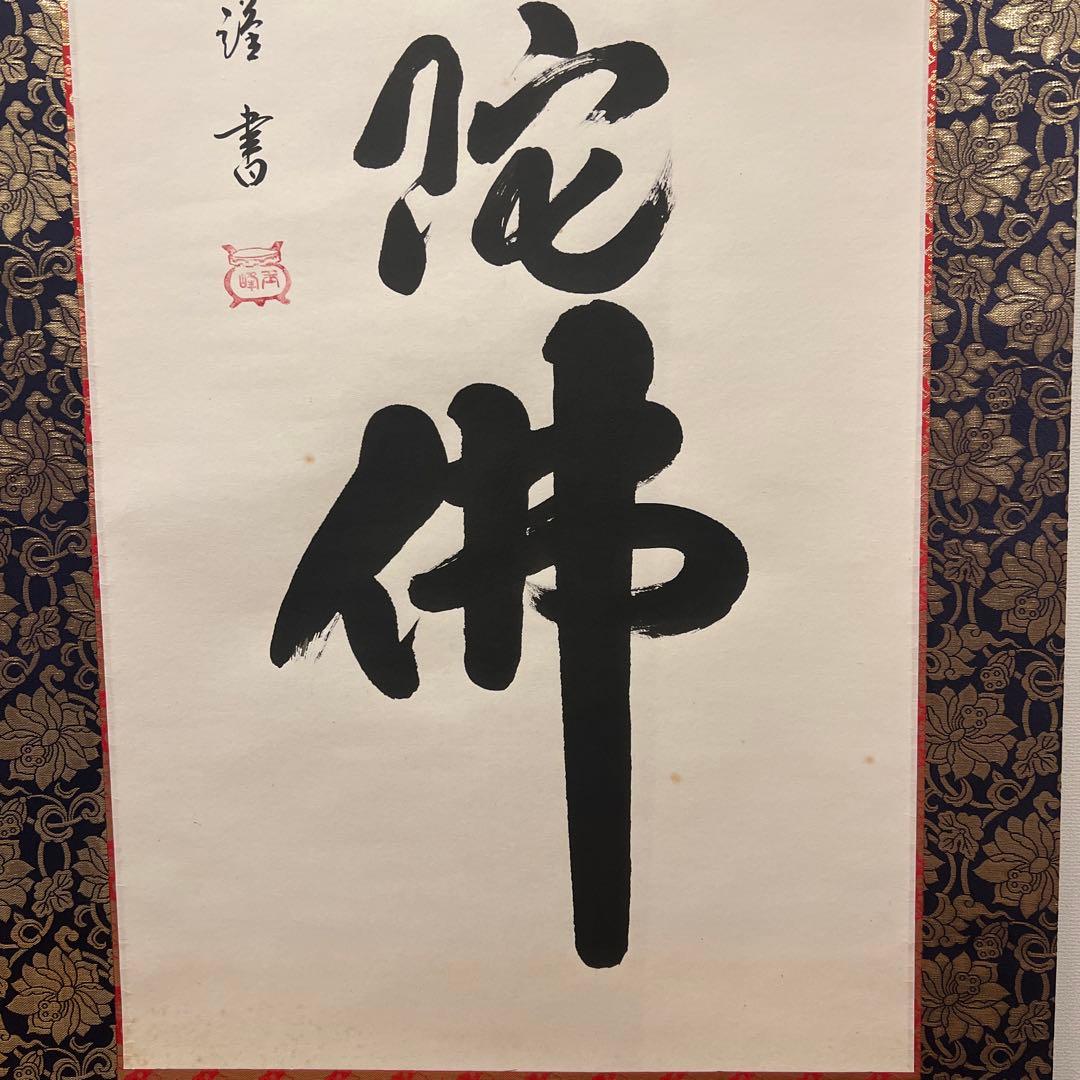 陀佛
謹書